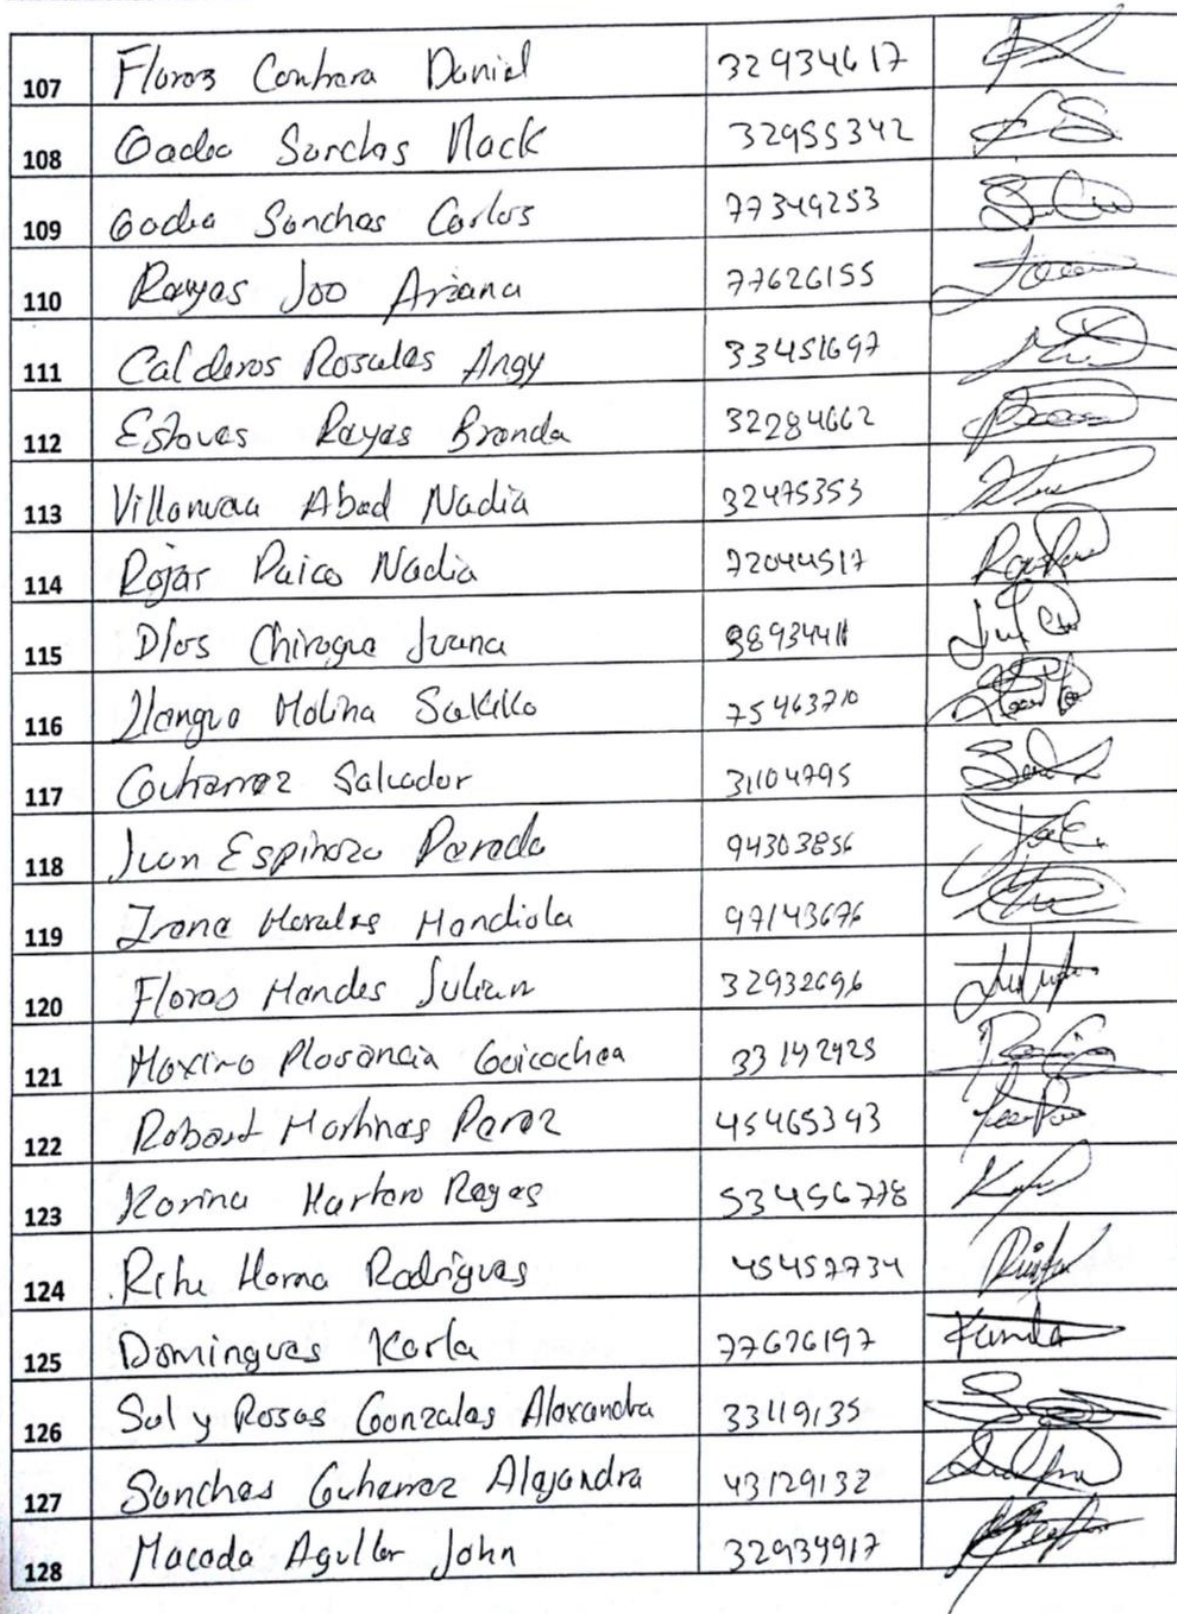 107 Flores Contrera Daniel 32934617
108 Gadea Sanches Mack 32955342
109 Gadea Sanches Carlos 77349253
110 Reyes Joo Ariana 77626155
111 Calderos Rosales Angy 33451697
112 Esteves Reyes Brenda 32284662
113 Villanueva Abad Nadia 32475353
114 Rojas Paico Nadia 72044517
115 Dios Chiroque Juana
116 Llenque Molina Sakiko 75463710
117 Gutierrez Salvador 31104795
118 Juan Espinoza Pereda 94303856
119 Irene Morales Mendiola 97143676
120 Flores Mendes Julian 32932696
121 Maximo Plasencia Goicochea 33142925
122 Robert Martines Perez 45465343
123 Karina Martero Reyes 53456778
124 Horna Rodrigues 45457734
125 Domingues Karla 77676197
126 Sal y Rosas Gonzales Alexandra 33119135
127 Sanches Gutierrez Alejandra 43129132
128 Maceda Aguller John 32934917